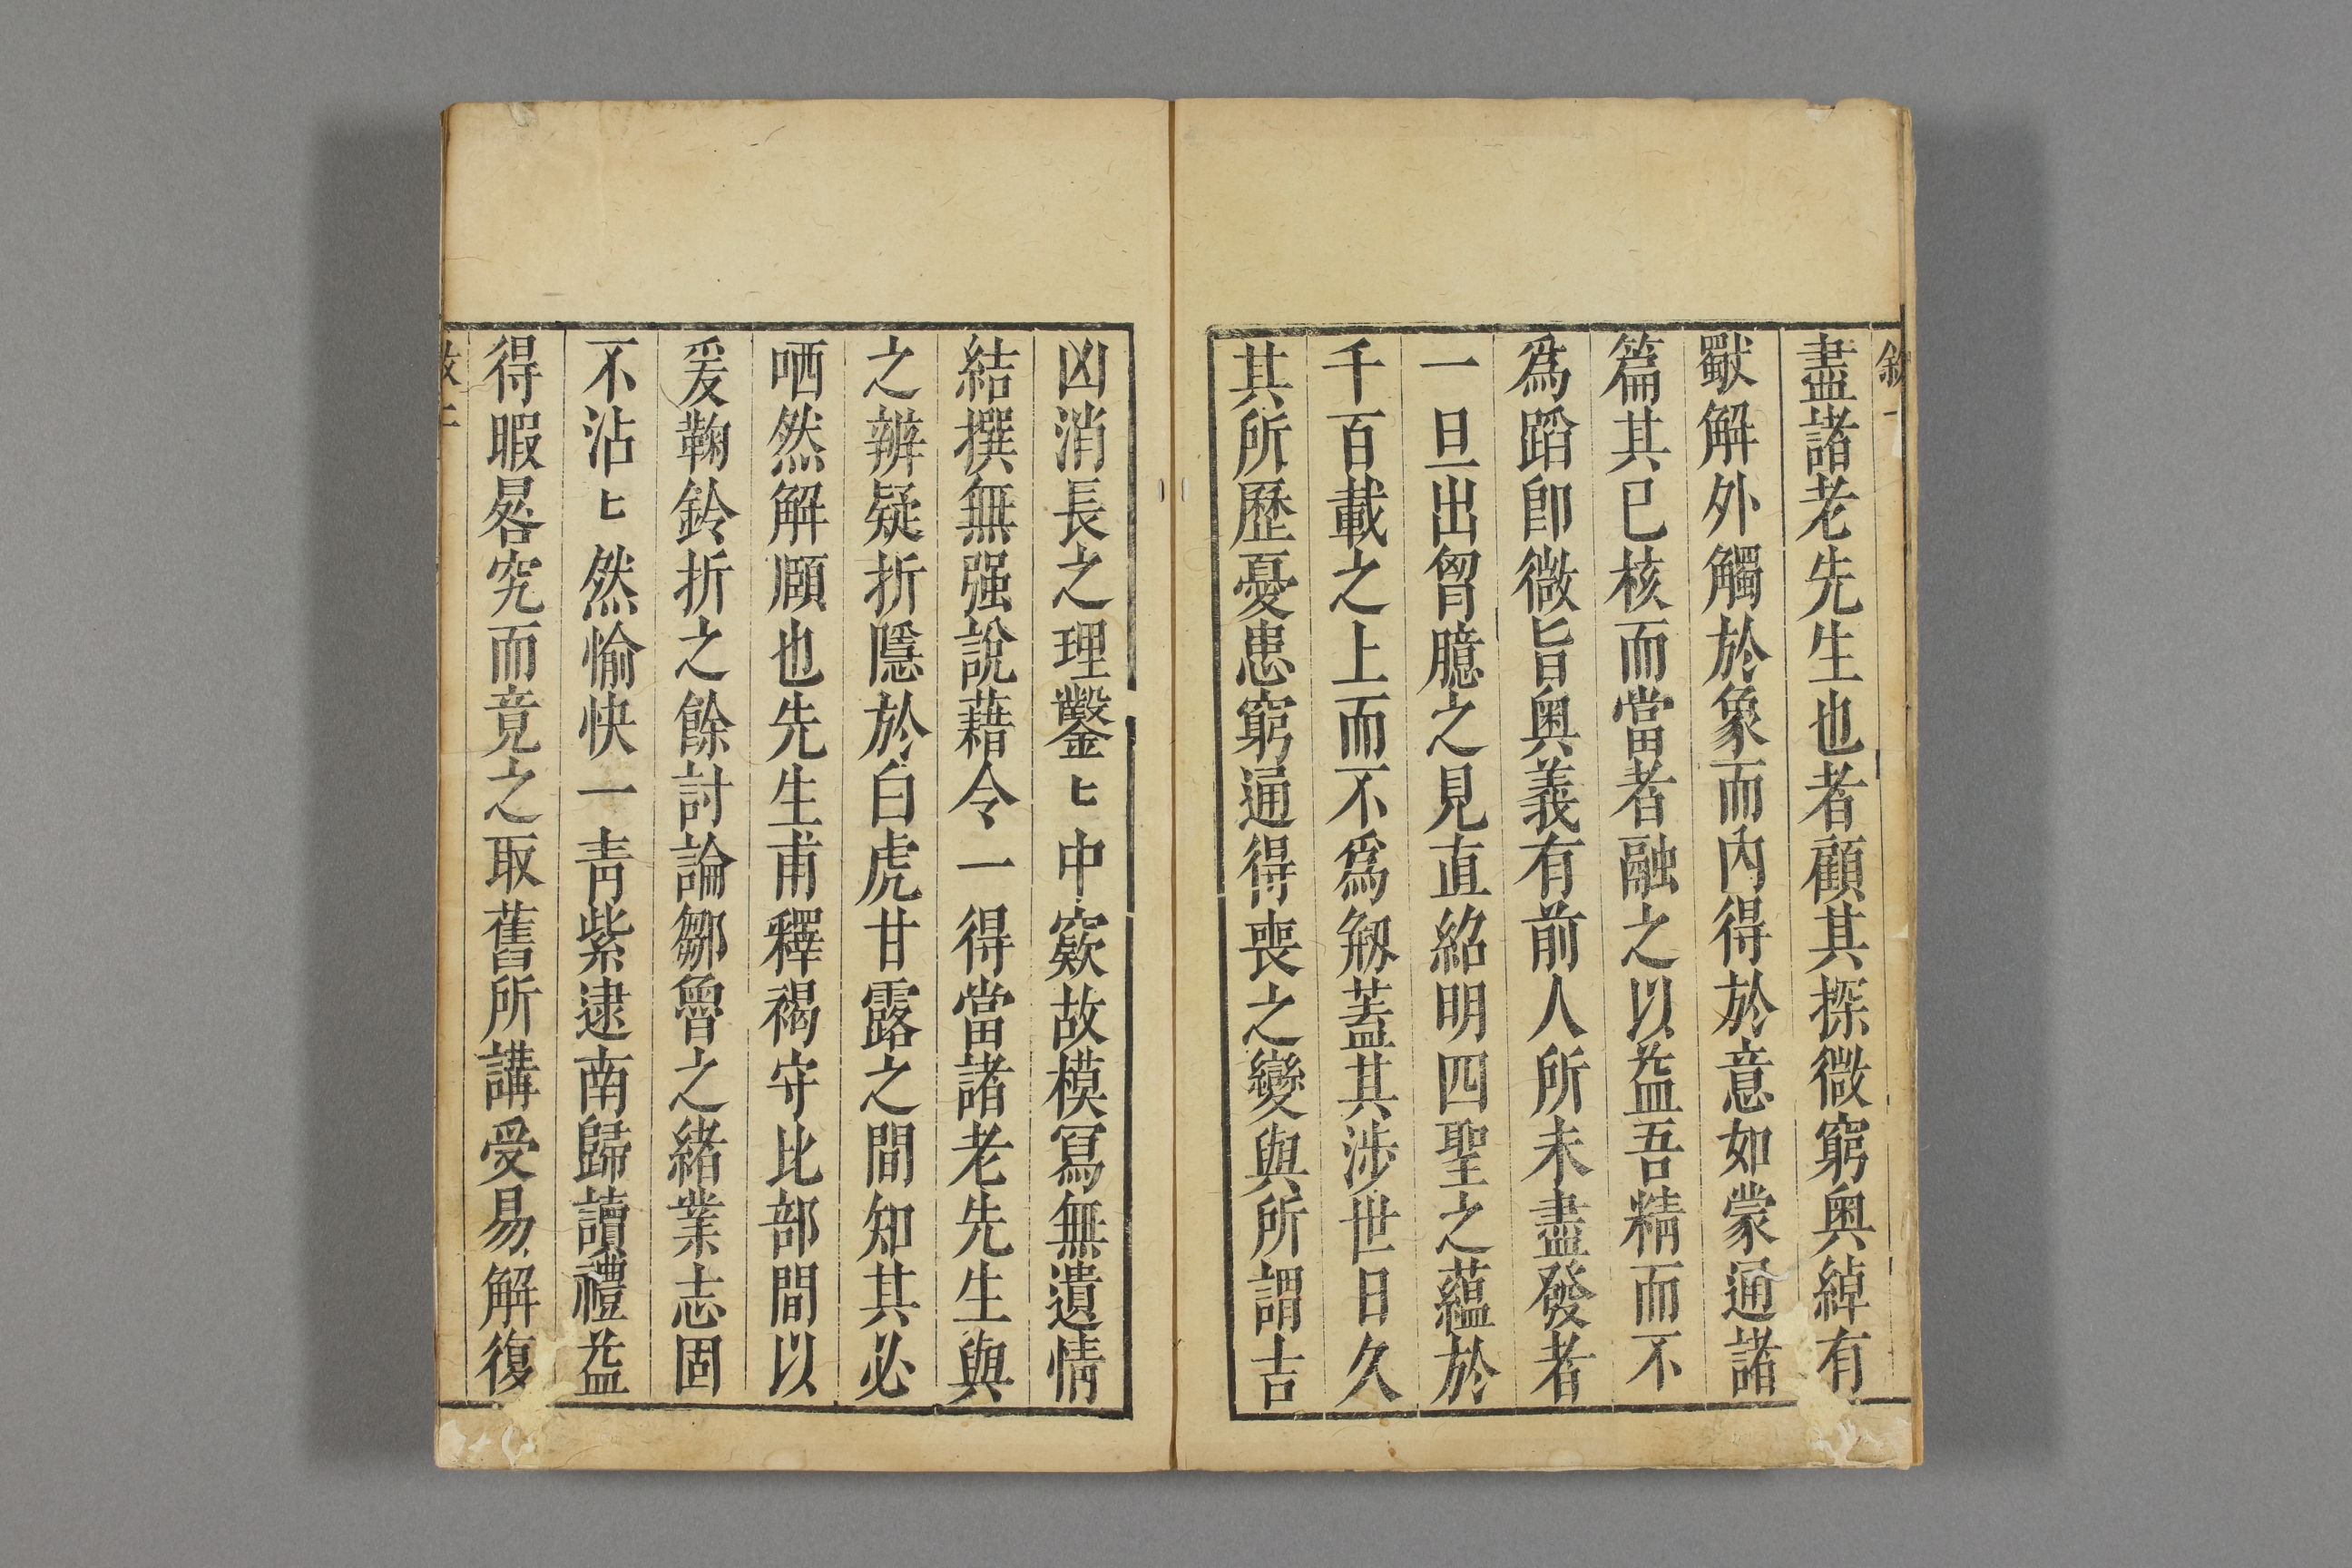 敘 一
盡諸老先生也者顧其探微窮奧綽有
獸解外觸於象而內得於意如蒙通諸
篇其已核而當者融之以益吾精而不
爲蹈卽微旨奧義有前人所未盡發者
一旦出胷臆之見直紹明四聖之蘊於
千百載之上而不爲剏蓋其涉世日久
其所歷憂患窮通得喪之變與所謂吉
凶消長之理鑿〻中窾故模冩無遺情
結撰無强說藉令一得當諸老先生與
之辨疑折隱於白虎甘露之間知其必
哂然解頤也先生甫釋褐守比部間以
爰鞫鈴折之餘討論鄒魯之緒業志固
不沾〻然愉快一靑紫逮南歸讀禮益
得暇晷究而竟之取舊所講受易解復
敘 二